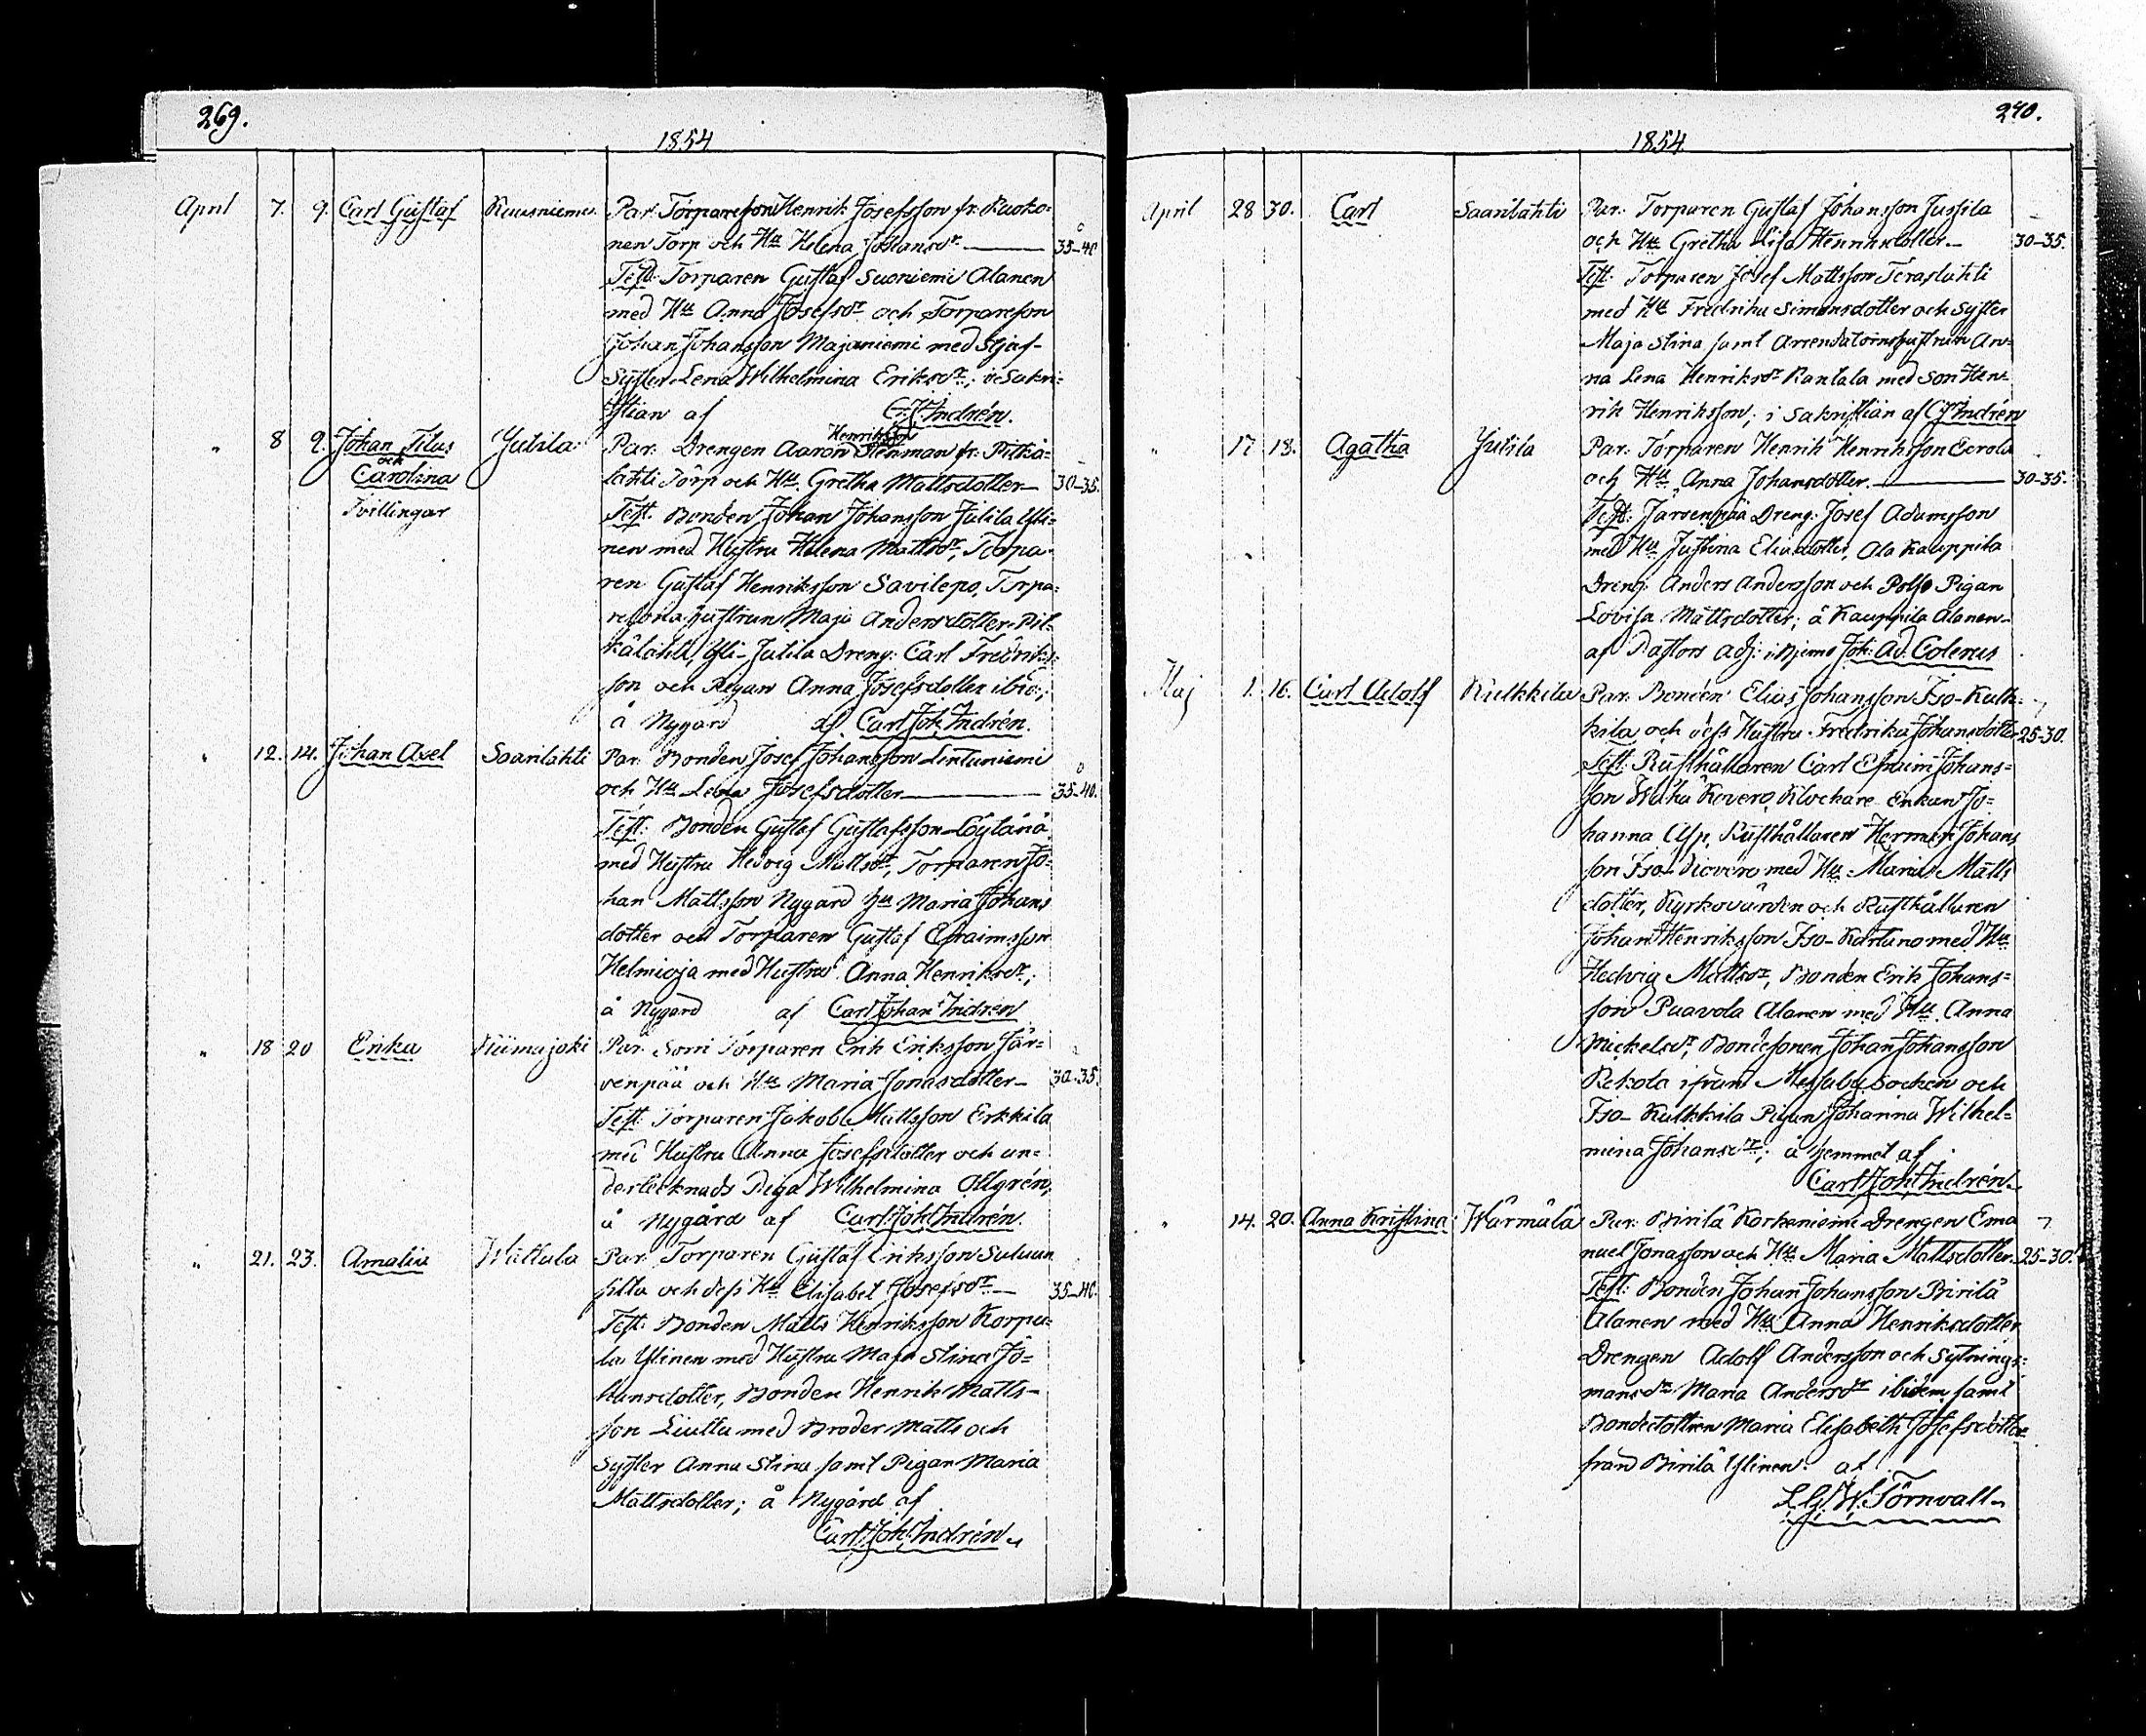 269.
1854
April 7. 9. Carl Gustaf Kuusniemi Par. Torparesson Henrik Josefsson fr. Kuoko-
nen Torp och Hu Helena Johansdr 35-40
Test: Torparen Gustaf Suoniemi Alanen
med Hu Anna Josefsdr och Torpareson
Johan Johansson Majaniemi med Styf-
Syster Lena Wilhelmina Eriksdr; i Sakri-
stian af C.J. Indrén.
" 8 9. Johan Titus Julila Par. Drengen Aaron Henriksson Stenman fr. Pitkä-
och Carolina lahti Torp och Hu Gretha Mattsdotter 30-35.
Tvillingar Test. Bonden Johan Johansson Julila Yli-
nen med Hustru Helena Mattsdr, Torpa-
ren Gustaf Henriksson Savilepo, Torpa-
rehustrun Maja Andersdotter Pit-
kälahti, Yli-Julila Dreng: Carl Fredriks-
son och Pigan Anna Josefsdotter ibid:;
å Nygård af Carl Joh. Indrén.
" 12. 14. Johan Axel Saarilahti Par. Bonden Josef Johansson Lintuniemi
och Hu Lena Josefsdotter 35-40.
Test: Bonden Gustaf Gustafsson Löytänä
med Hustru Hedvig Mattsdr, Torparen Jo-
han Mattsson Nygård Hu Maria Johans
dotter och Torparen Gustaf Efraimsson
Helmioja med Hustru Anna Henriksdr;
å Nygård af Carl Johan Indrén
" 18 20 Erika Niimajoki Par. Sorri Torparen Erik Eriksson Jär-
venpää och Hu Maria Jonasdotter 30-35.
Test: Torparen Jakob Mattsson Erkkilä
med Hustru Anna Josefsdotter och un-
dertecknads Piga Wilhelmina Allgrén;
å Nygård af Carl Joh. Indrén.
" 21. 23. Amalia Wattula Par. Torparen Gustaf Eriksson
och dess Hu Elisabet Josefsdr 35-40.
Test: Bonden Matts Henriksson Korpu-
la Ylinen med Hustru Maja Stina Jo-
hansdotter, Bonden Henrik Matts-
son Liutta med Broder Matts och
Syster Anna Stina samt Pigan Maria
Mattsdotter; å Nygård af
Carl Joh. Indrén
240.
1854
April 28 30. Carl Saarilahti Par: Torparen Gustaf Johansson Jussila
och Hu Gretha Lisa Henriksdotter 30-35.
Test: Torparen Josef Mattsson Teraslahti
med Hu Fredrika Simonsdotter och Syster
Maja Stina samt Arrendatorshustrun An-
na Lena Henriksdr Rantala med Son Hen-
rik Henriksson; i Sakristian af CJ Indrén
" 17 18. Agatha Julila Par: Torparen Henrik Henriksson Eerola
och Hu Anna Johansdotter. 30-35.
Test: Järvenpää Dreng: Josef Adamsson
med Hu Justina Eliasdotter, Ala Kauppila
Dreng: Anders Andersson och Polso Pigan
Lovisa Mattsdotter; å Kauppila Alanen
af Pastors Adj: i Joh: Ad: Colerus
Maj 1. 16. Carl Adolf Kulkkila Par: Bonden Elias Johansson Iso-Kulk-
kila och dess Hustru Fredrika Johansdotter 25-30.
Test: Rusthållaren Carl Efraim Johans-
son Wähä Kovero, Klockare Enkan Jo-
hanna Asp, Rusthållaren Herman Johans
son Iso-Kovero med Hu Maria Matts
dotter, Kyrkovärden och Rusthållaren
Johan Henriksson Iso-Kartano med Hu
Hedvig Mattsdr, Bonden Erik Johans-
son Paavola Alanen med Hu Anna
Mickelsdr, Bondesonen Johan Johansson
Rekola ifrån Messuby socken och
Iso-Kulkkila Pigan Johanna Wilhel-
mina Johansdr; å hemmet af
Carl Joh. Indrén
" 14. 20. Anna Kristina Wärmälä Par: Birilä Korkeniemi Drengen Ema
nuel Jonasson och Hu Maria Mattsdotter. 25-30.
Test: Bonden Johan Johansson Birilä
Alanen med Hu Anna Henriksdotter
Drengen Adolf Andersson och Sytnings-
mansdr Maria Andersdr ibidem samt
Bondedottren Maria Elisabeth Josefsdotter
från Birilä Ylinen: af
L.G.W. Törnvall